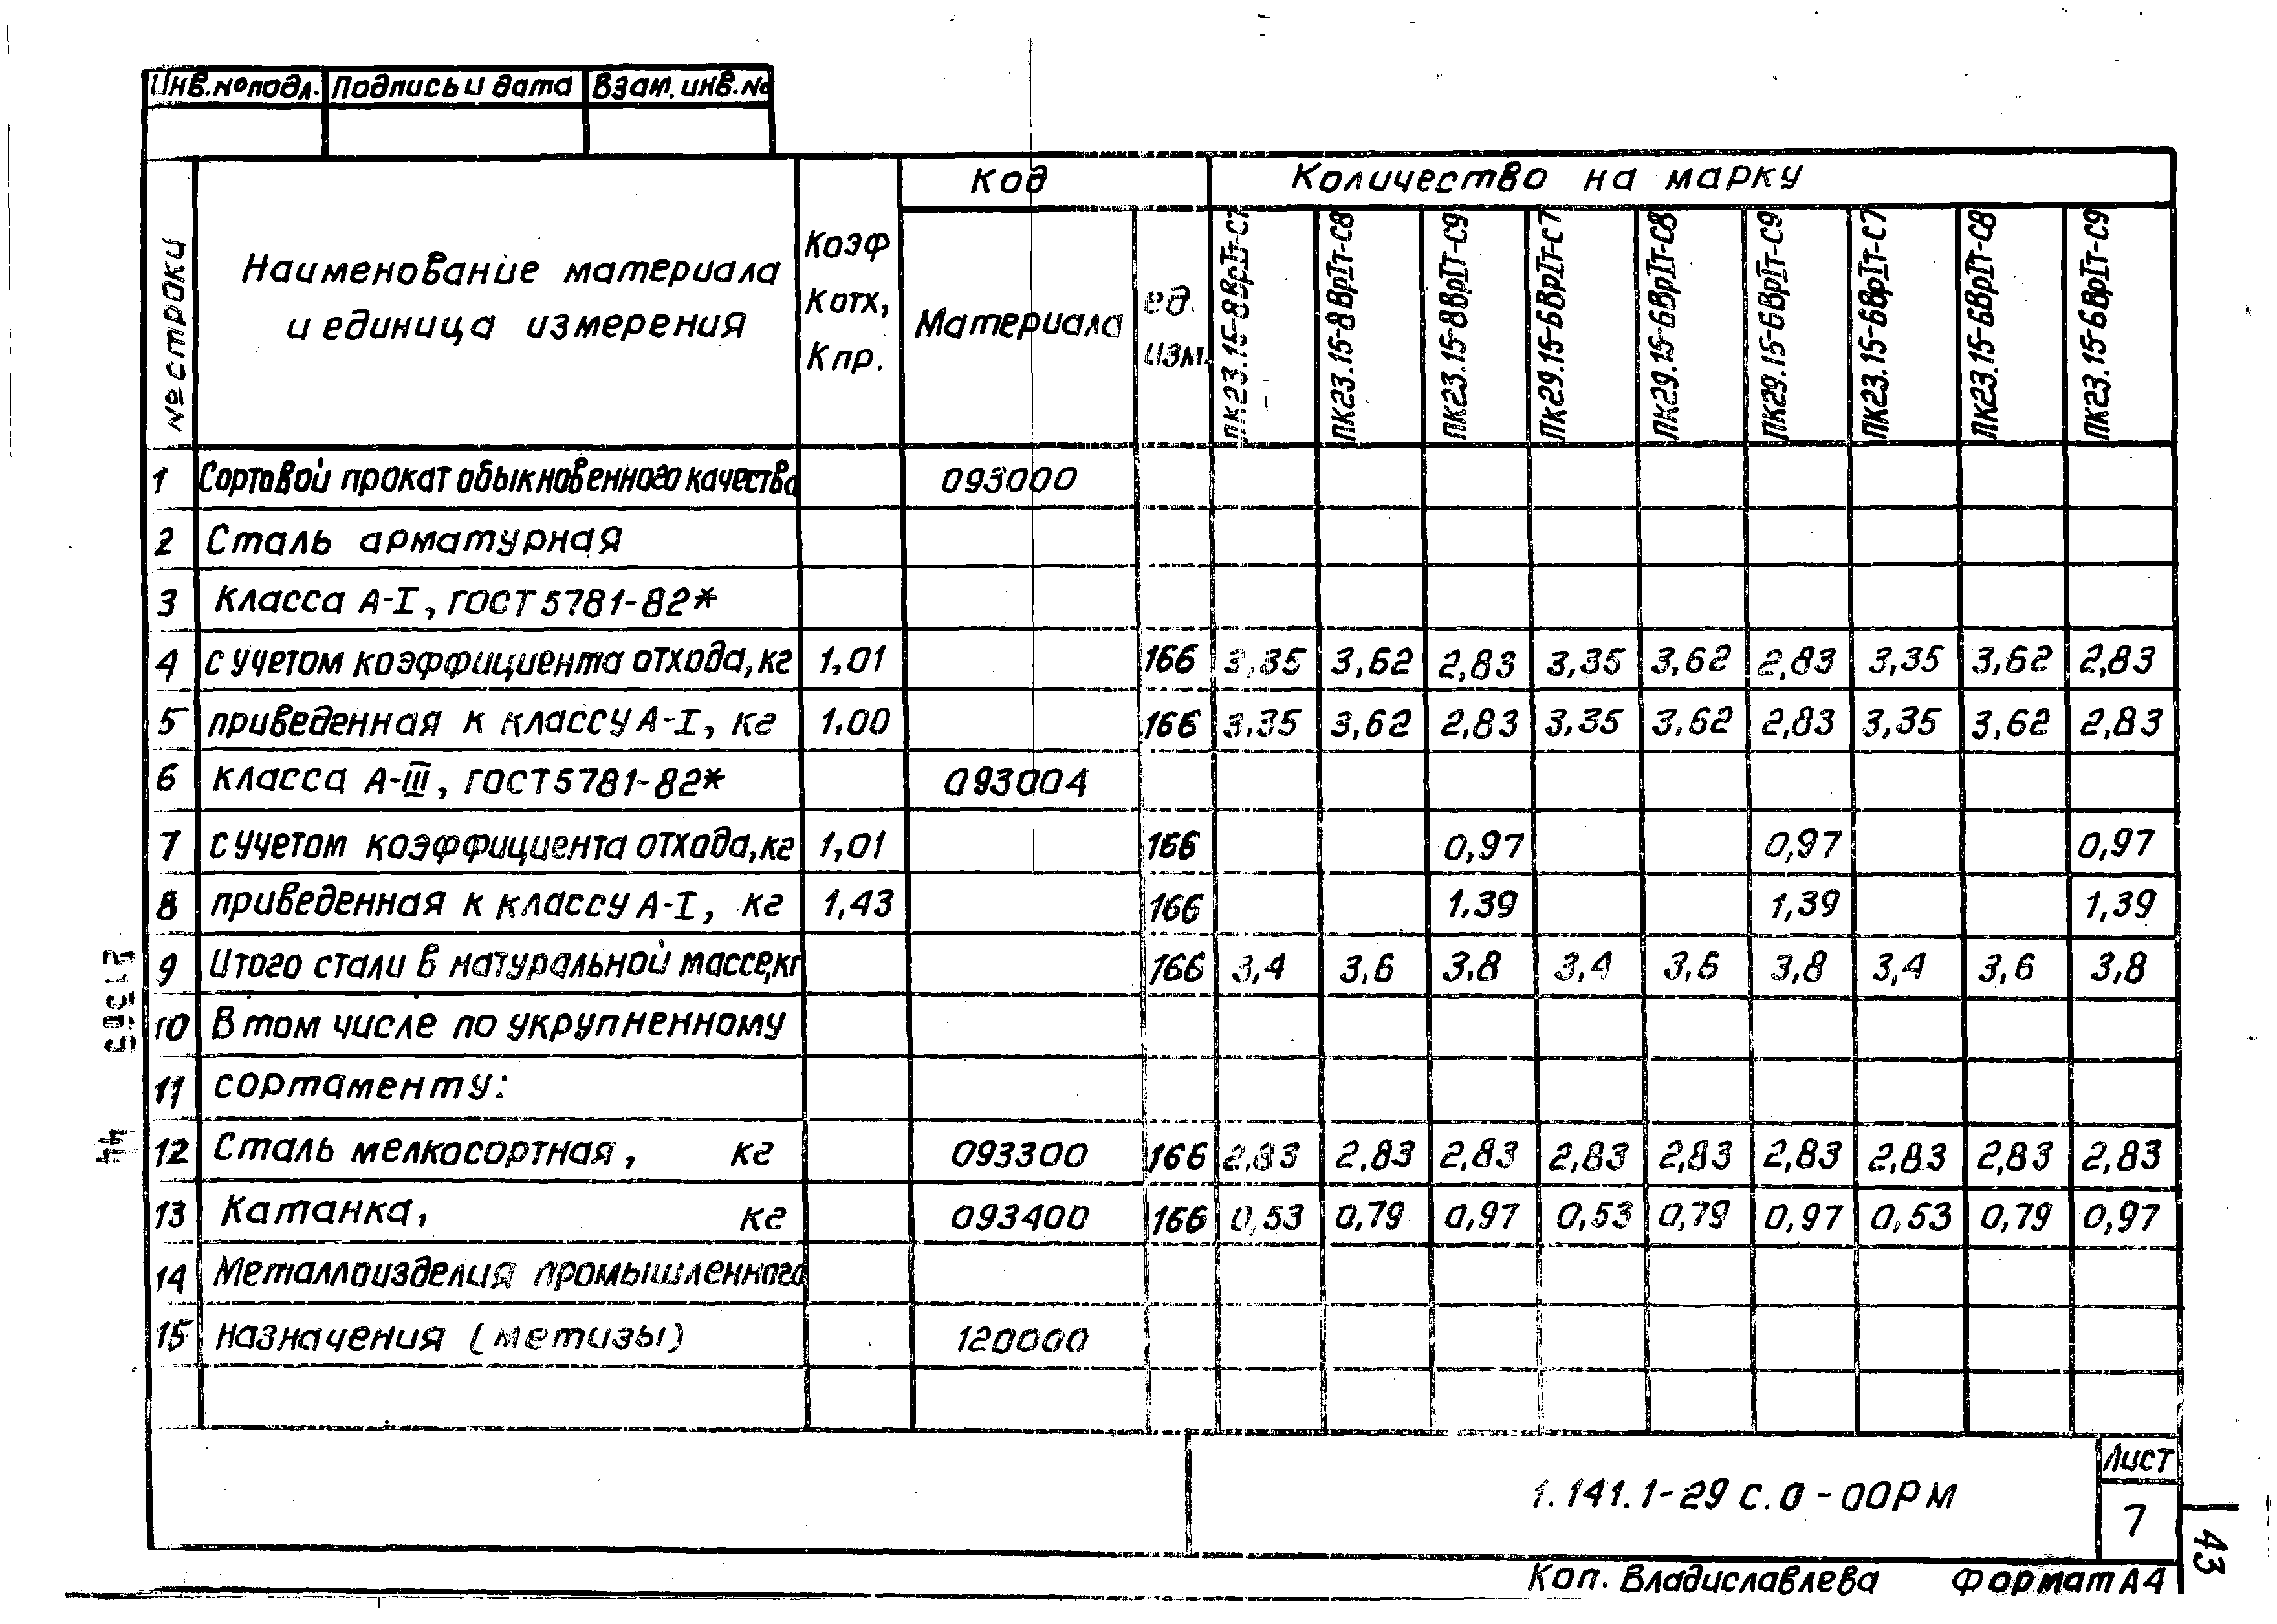 Инв.№ подл. Подпись и дата Взам. инв.№
№ строки Наименование материала и единица измерения Коэф Котх, Кпр. Код Количество на марку
Материала ед. изм. ПК23.15-8ВрIт-С7 ПК23.15-8ВрIт-С8 ПК23.15-8ВрIт-С9 ПК29.15-6ВрIт-С7 ПК29.15-6ВрIт-С8 ПК29.15-6ВрIт-С9 ПК23.15-6ВрIт-С7 ПК23.15-6ВрIт-С8 ПК23.15-6ВрIт-С9
1 Сортовой прокат обыкновенного качества 093000
2 Сталь арматурная
3 класса А-I, ГОСТ 5781-82*
4 с учетом коэффициента отхода, кг 1,01 166 3,35 3,62 2,83 3,35 3,62 2,83 3,35 3,62 2,83
5 приведенная к классу А-I, кг 1,00 166 3,35 3,62 2,83 3,35 3,62 2,83 3,35 3,62 2,83
6 класса А-III, ГОСТ 5781-82* 093004
7 с учетом коэффициента отхода, кг 1,01 166 0,97 0,97 0,97
8 приведенная к классу А-I, кг 1,43 166 1.39 1,39 1,39
9 Итого стали в натуральной массе, кг 166 3,4 3,6 3,8 3,4 3,6 3,8 3,4 3,6 3,8
10 В том числе по укрупненному
11 сортаменту:
12 Сталь мелкосортная, кг 093300 166 2,83 2,83 2,83 2,83 2,83 2,83 2,83 2,83 2,83
13 Катанка, кг 093400 166 0,53 0,79 0,97 0,53 0,79 0,97 0,53 0,79 0,97
14 Металлоизделия промышленного
15 назначения (метизы) 120000
1.141.1-29 с.0-00РМ
Лист
7
43
44
Коп. Владиславлева Формат А4